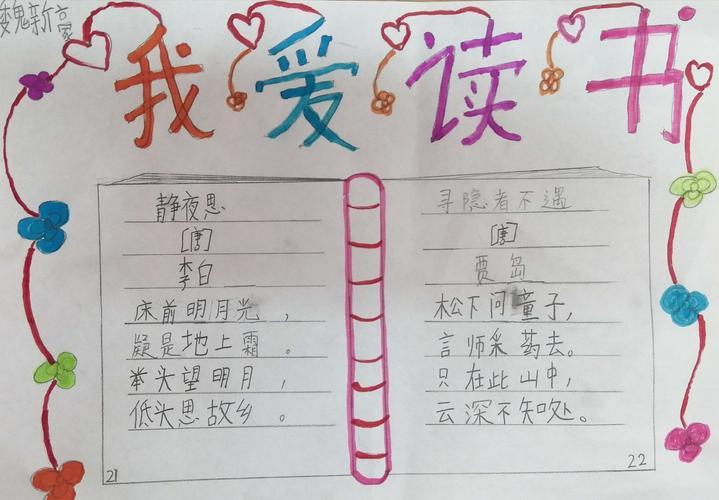 魏新豪
我爱读书
静夜思
[唐]
李白
床前明月光，
疑是地上霜。
举头望明月，
低头思故乡。
21
寻隐者不遇
[唐]
贾岛
松下问童子，
言师采药去。
只在此山中，
云深不知处。
22